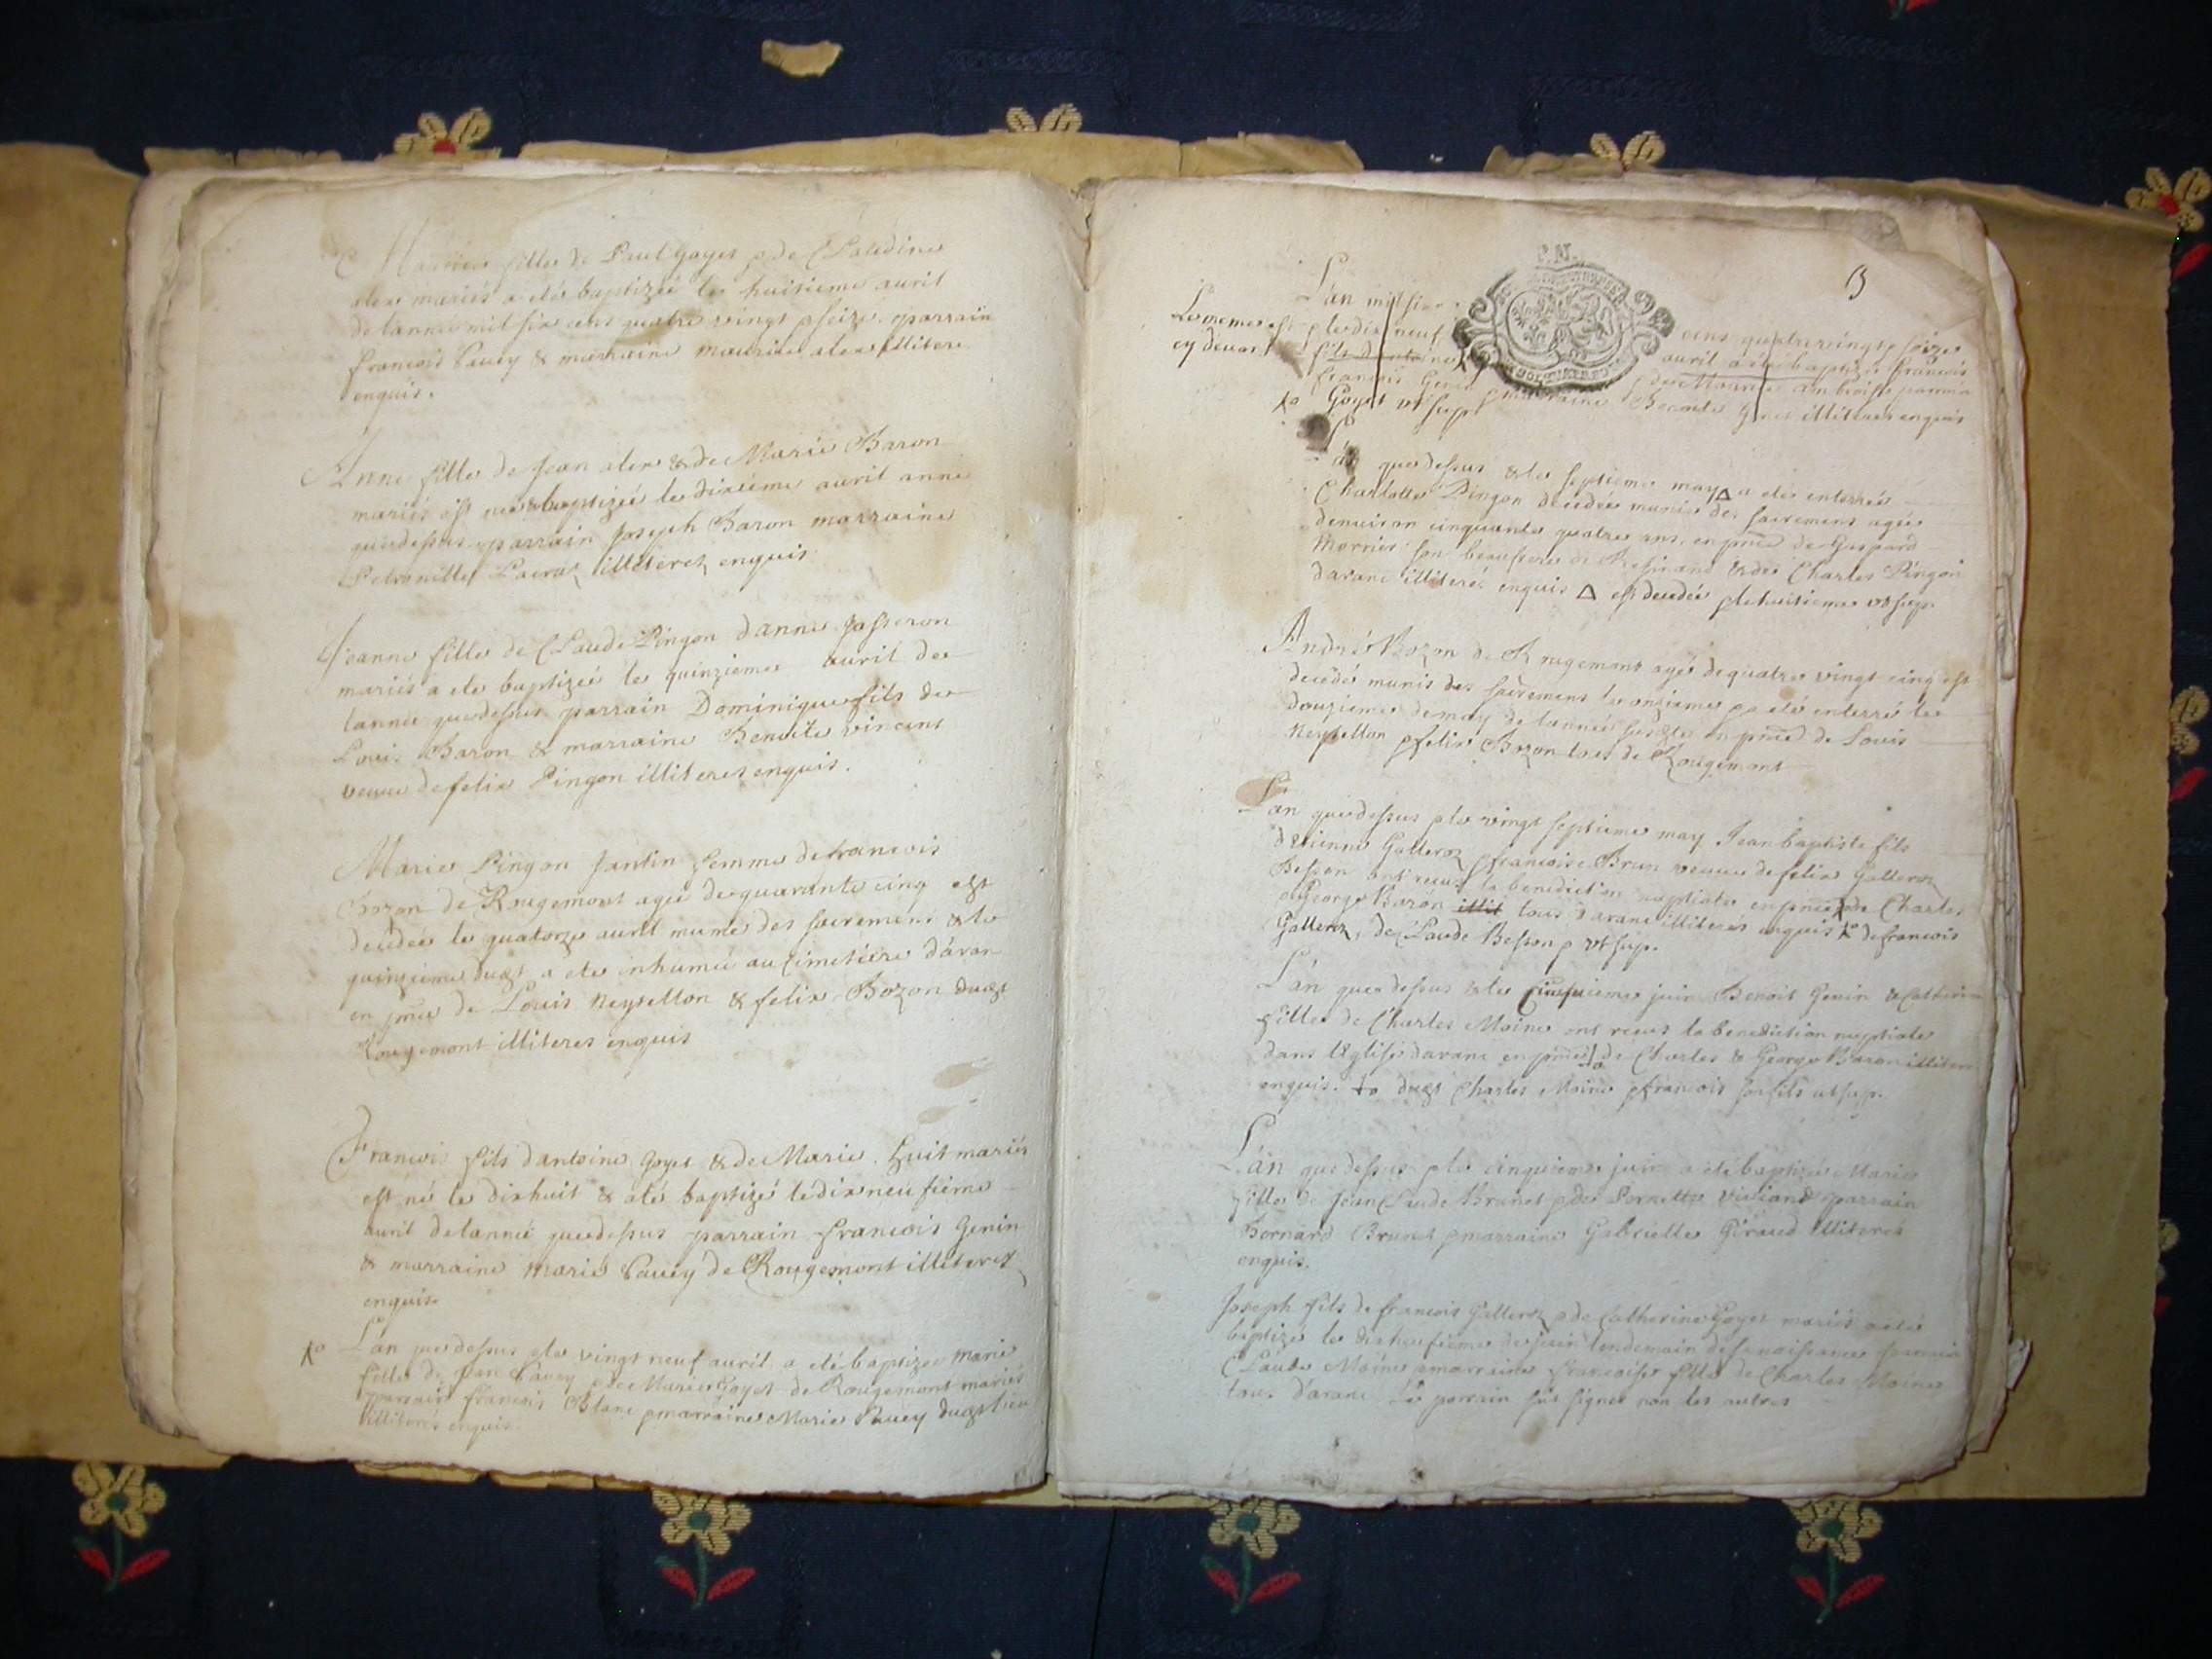 fille de Paul Goyet & de Claudine
mariés a eté baptizée le huitieme avril
de lannée mil six cens quatre vingt & seize. parrain
francois Pauey & marraine
enquis.
Anne fille de Jean & de Marie Baron
mariés est née & baptizée le dixieme avril anné
que dessus parrain Joseph Baron marraine
Petronille illiterez enquis
Jeanne fille de Claude Pingon danne Jasseron
mariés a ete baptizeé le quinzieme avril de
lannée que dessus parrain Dominique fils de
Louis Baron & marraine Benoite vincent
veuue de felix Pingon illiteres enquis.
Marie Pingon Jantin femme de francois
Bozon de Rougemont ageé de quarante cinq est
decedeé le quatorze avril munie des sacremens & le
quinzieme dudt a ete inhumeé au Cimetiere d'aran
en pnce de Louis Neyrellon & felix Bozon dudt
Rougemont illiteres enquis
Francois fils dantoine Goyet & de Marie Huit mariés
est né le dixhuit & a eté baptizé le dixneufieme
avril de lanneé que dessus parrain francois Genin
& marraine Marie Pauey de Rougemont illiterez
enquis
L'an que dessus & le vingt neuf avril a eté baptizeé Marie
fille de Jean Pauey & de Marie Goyet de Rougemont mariés
parrain francois Blanc & marraine Marie Pauey dudt lieu
illiteres enquis.
L'an mil six cens quatre vingt & seize
Le meme est & le dix neuf avril a eté baptizé francois
cy deuant fils dantoine de Marie parrain
francois Genin & marraine Benoite illiteres enquis
Goyet vt sup
L'an que dessus & le septieme may Δ a eté enterreé
Charlotte Pingon decedée munie des sacremens ageé
denuiron cinquante quatre ans, en pnce de Gaspard
son beaufrere & de Charles Pingon
d'aranc illiteres enquis Δ est decedeé & le huitieme vt sup.
André Bozon de Rougemont agé de quatre vingt cinq est
decedé munis des sacremens le onzieme & a eté enterré le
douzieme de may de lannée en pnce de Louis
Neyrellon & felix Bozon tous de Rougemont
L'an que dessus & le vingt septieme may Jean baptiste fils
d'etienne Galleroz & francoise Brun veuue de felix Galleroz
Besson ont receu la benediction nuptiale en pnce de Charles
& George Baron illit tous d'aranc illiteres enquis de francois
Galleroz, de Claude Besson & vt sup.
L'an que dessus & le Cinquieme juin Benoit Genin & Catherine
fille de Charles Moine ont receu la benediction nuptiale
dans l'Eglise d'aranc en pnce de Charles & George Baron illiteres
enquis. dudt Charles Moine & francois son fils vt sup.
L'an que dessus & le cinquieme juin a eté baptizeé Marie
fille de Jean Claude Brunet & de Pernette Viviand parrain
Bernard Brunet & marraine Gabrielle Giraud illiteres
enquis.
Joseph fils de francois Galleroz & de Catherine Goyet mariés a eté
baptizé le dixneufieme de juin lendemain de sa naissance parrain
Claude Moine & marraine francoise fille de Charles Moine
tous d'aranc le parrain signer non les autres